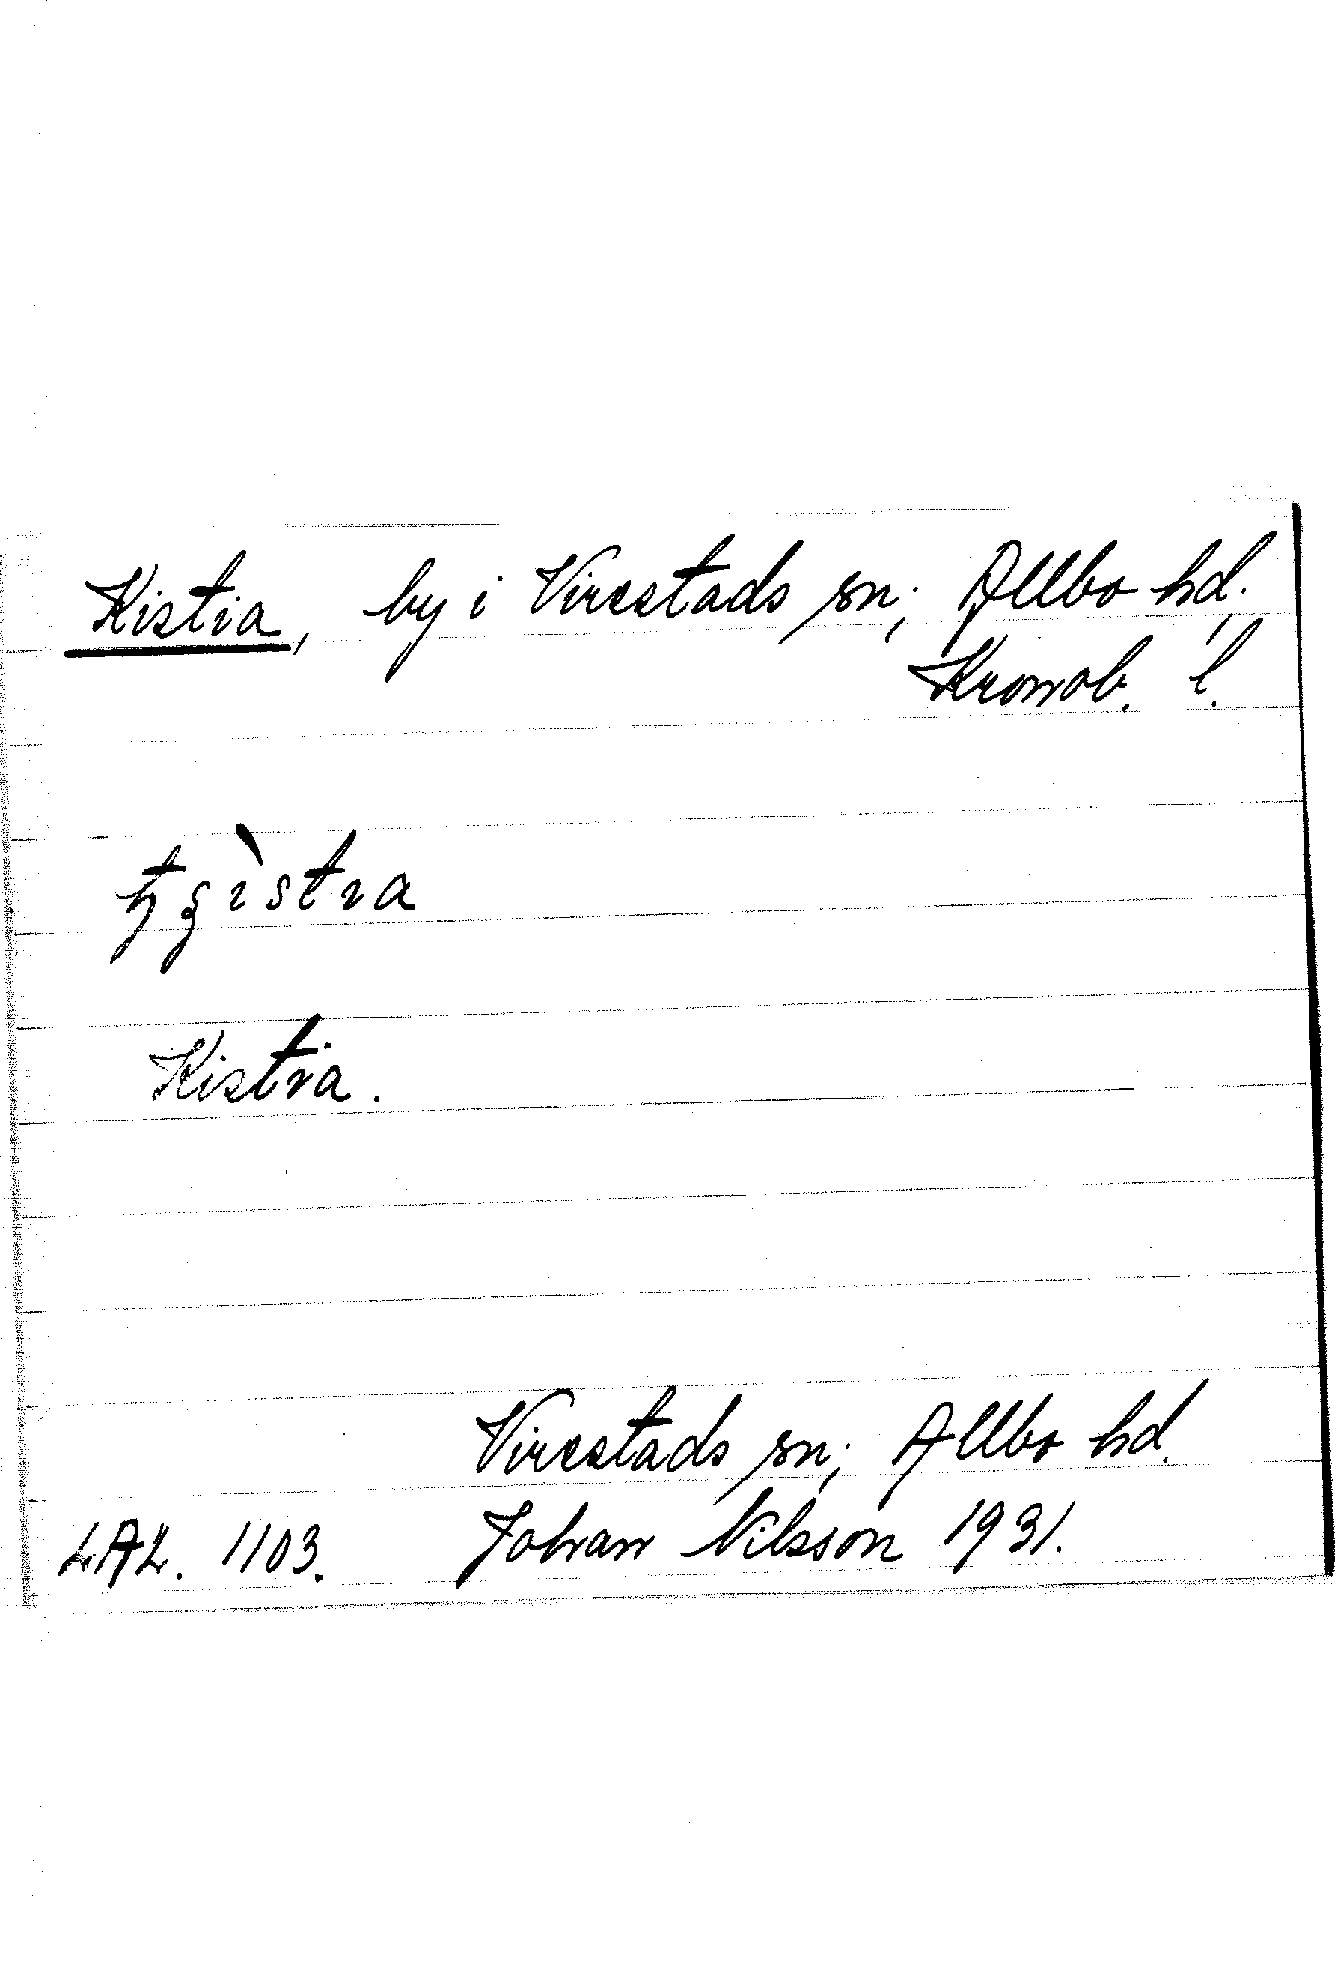 Kistia, by i Virestads sn; Allbo hd.
Kronob. l.
Kistia.
Virestads sn; Allbo hd.
LAL. 1103. Johan Nilsson 1931.